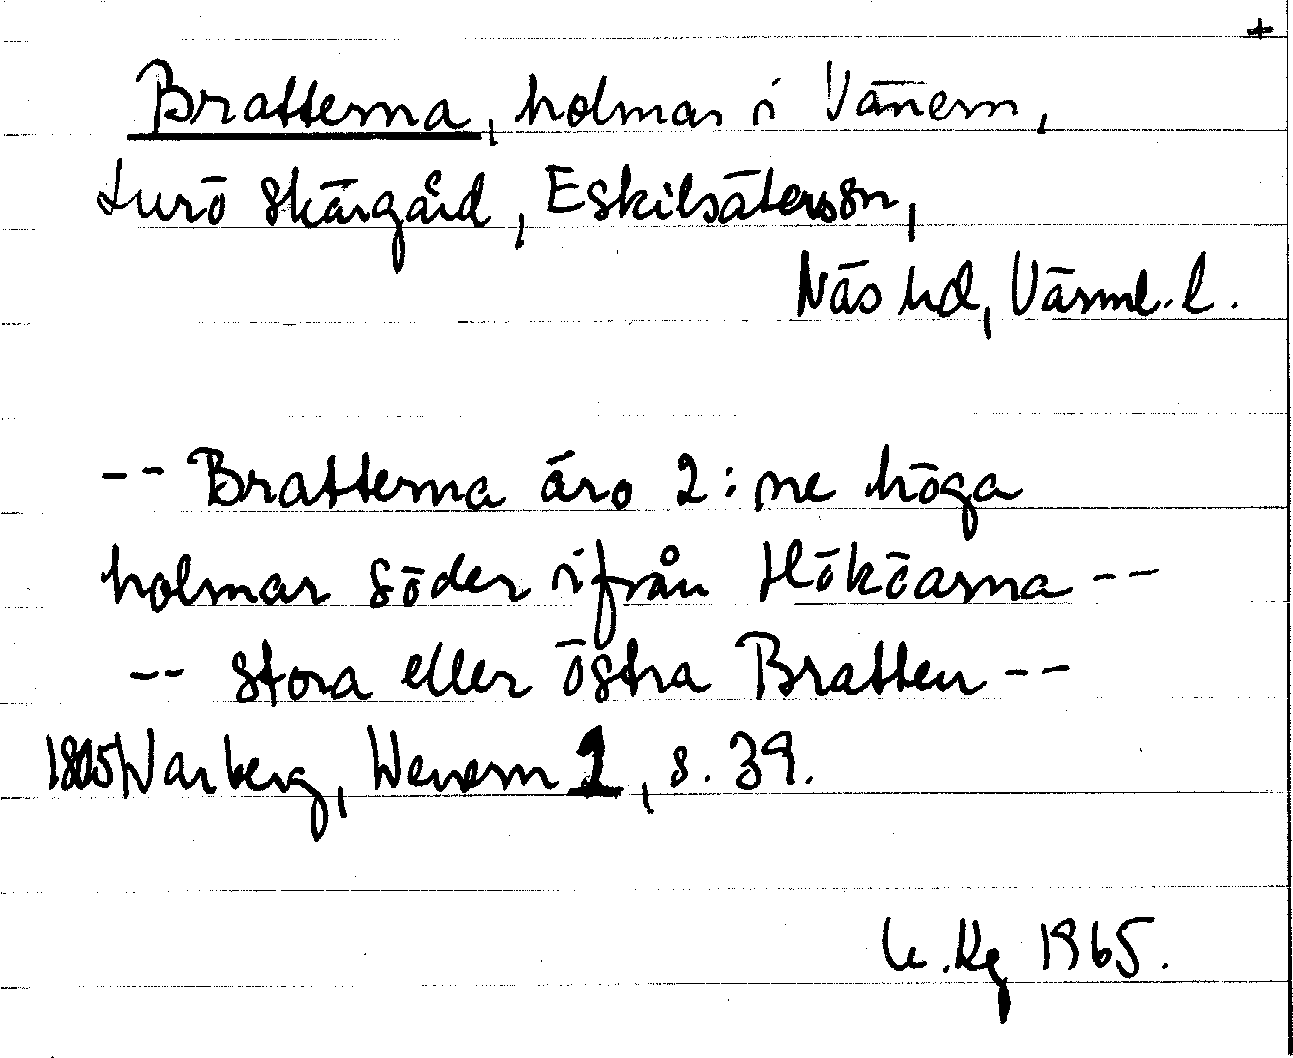 +
Bratterna, holmar i Vänern,
Lurö skärgård, Eskilsäterssn,
Näs hd, Värml. l.
-- Bratterna äro 2:ne höga
holmar söder ifrån Hököarna --
-- stora eller östra Bratten --
1805 Warberg, Wenern 1, s. 39.
1965.